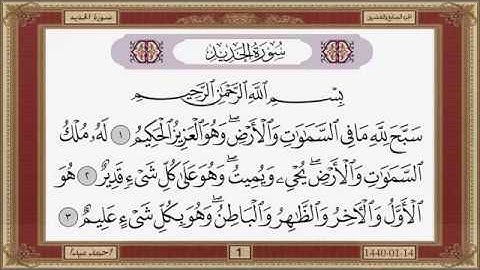 سورة الحديد
الجزء السابع والعشرون
سُورَةُ الحَدِيدِ
بِسْمِ اللَّهِ الرَّحْمَٰنِ الرَّحِيمِ
سَبَّحَ لِلَّهِ مَا فِي السَّمَاوَاتِ وَالْأَرْضِ ۖ وَهُوَ الْعَزِيزُ الْحَكِيمُ ١ لَهُ مُلْكُ
السَّمَاوَاتِ وَالْأَرْضِ ۖ يُحْيِي وَيُمِيتُ ۖ وَهُوَ عَلَىٰ كُلِّ شَيْءٍ قَدِيرٌ ٢ هُوَ
الْأَوَّلُ وَالْآخِرُ وَالظَّاهِرُ وَالْبَاطِنُ ۖ وَهُوَ بِكُلِّ شَيْءٍ عَلِيمٌ ٣
1
1440-01-14